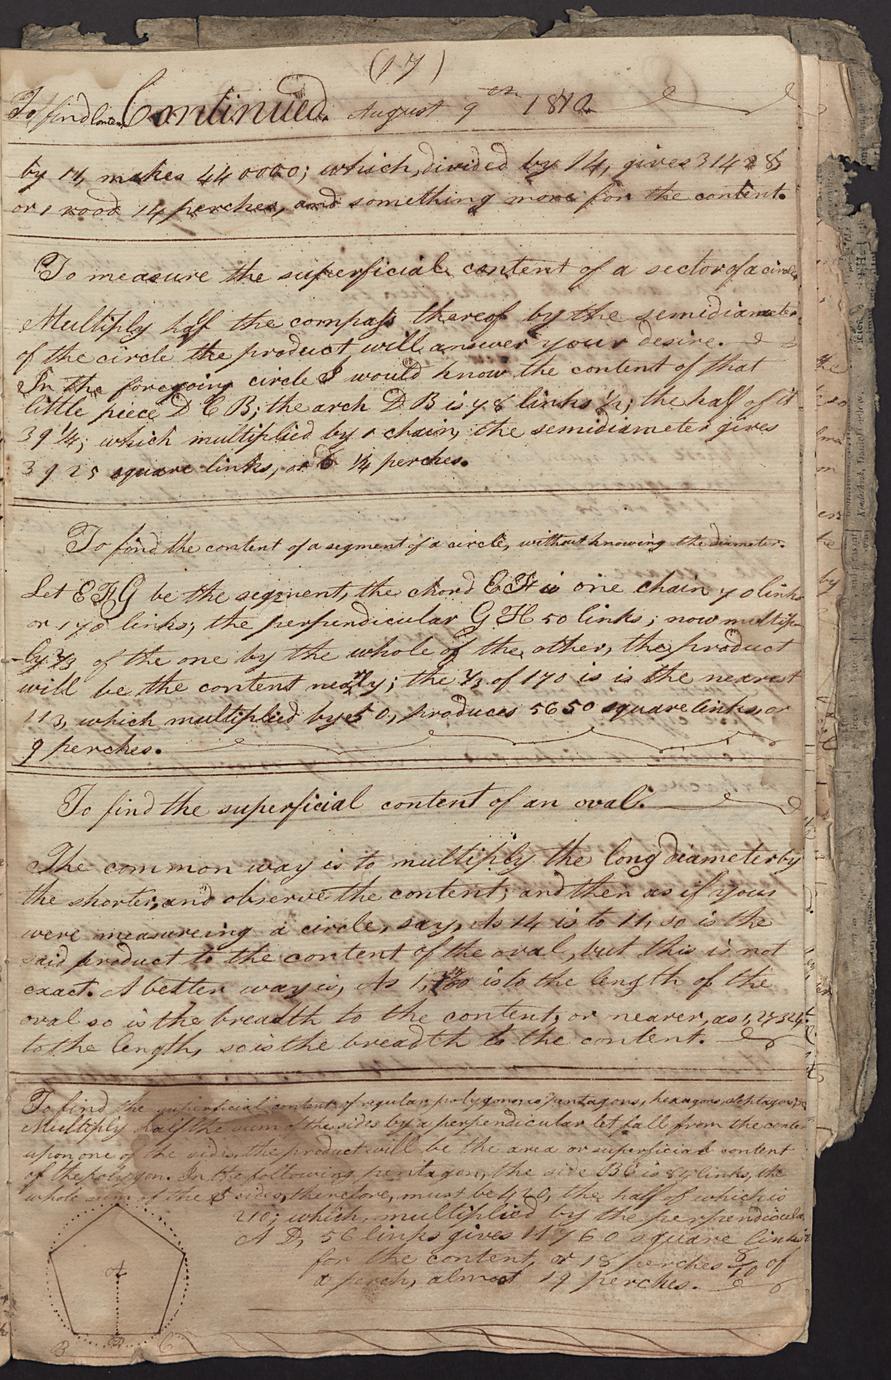 (17)
To find Conten. Continued. August 9th 1812
by 11, makes 440000; which, divided by 14, gives 31428
or 1 rood 14 perches, and something more for the content.
To measure the superficial content of a sector of a circle
Multiply half the compass thereof by the semidiameter
of the circle the product will answer your desire.
In the foregoing circle I would know the content of that
little piece D C B; the arch D B is 78 links ½; the half of it
39 ¼; which multiplied by 1 chain, the semidiameter gives
3925 square links, or 6 ¼ perches.
To find the content of a segment of a circle, without knowing the diameter.
Let E F G be the segment, the chord E F is one chain 70 links
or 170 links; the perpendicular G H 50 links; now multip-
ly ⅔ of the one by the whole of the other, the product
will be the content nearly; the ⅔ of 170 is is the nearest
113, which multiplied by 50, produces 5650 square links, or
9 perches.
To find the superficial content of an oval.
The common way is to multiply the long diameter by
the shorter, and observe the content; and then as if you
were measureing a circle, say, As 14 is to 11, so is the
said product to the content of the oval, but this is not
exact. A better way is, As 1, is to the length of the
oval so is the breadth to the content; or nearer, as 1,27324
to the length, so is the breadth to the content.
To find the superficial content of regular polygons; as pentagons, hexagons,
Multiply half the sum of the sides by a perpendicular let fall from the center
upon one of the sides, the product will be the area or superficial content
of the polygon. In the following pentagon, the side BC is 84 links, the
whole sum of the 5 sides, therefore, must be 420, the half of which is
210; which, multiplied by the perpendicular
A D, 56 links gives 11760 square links
for the content, or 18 perches 8/10 of
a perch, almost 19 perches.
A
B D C